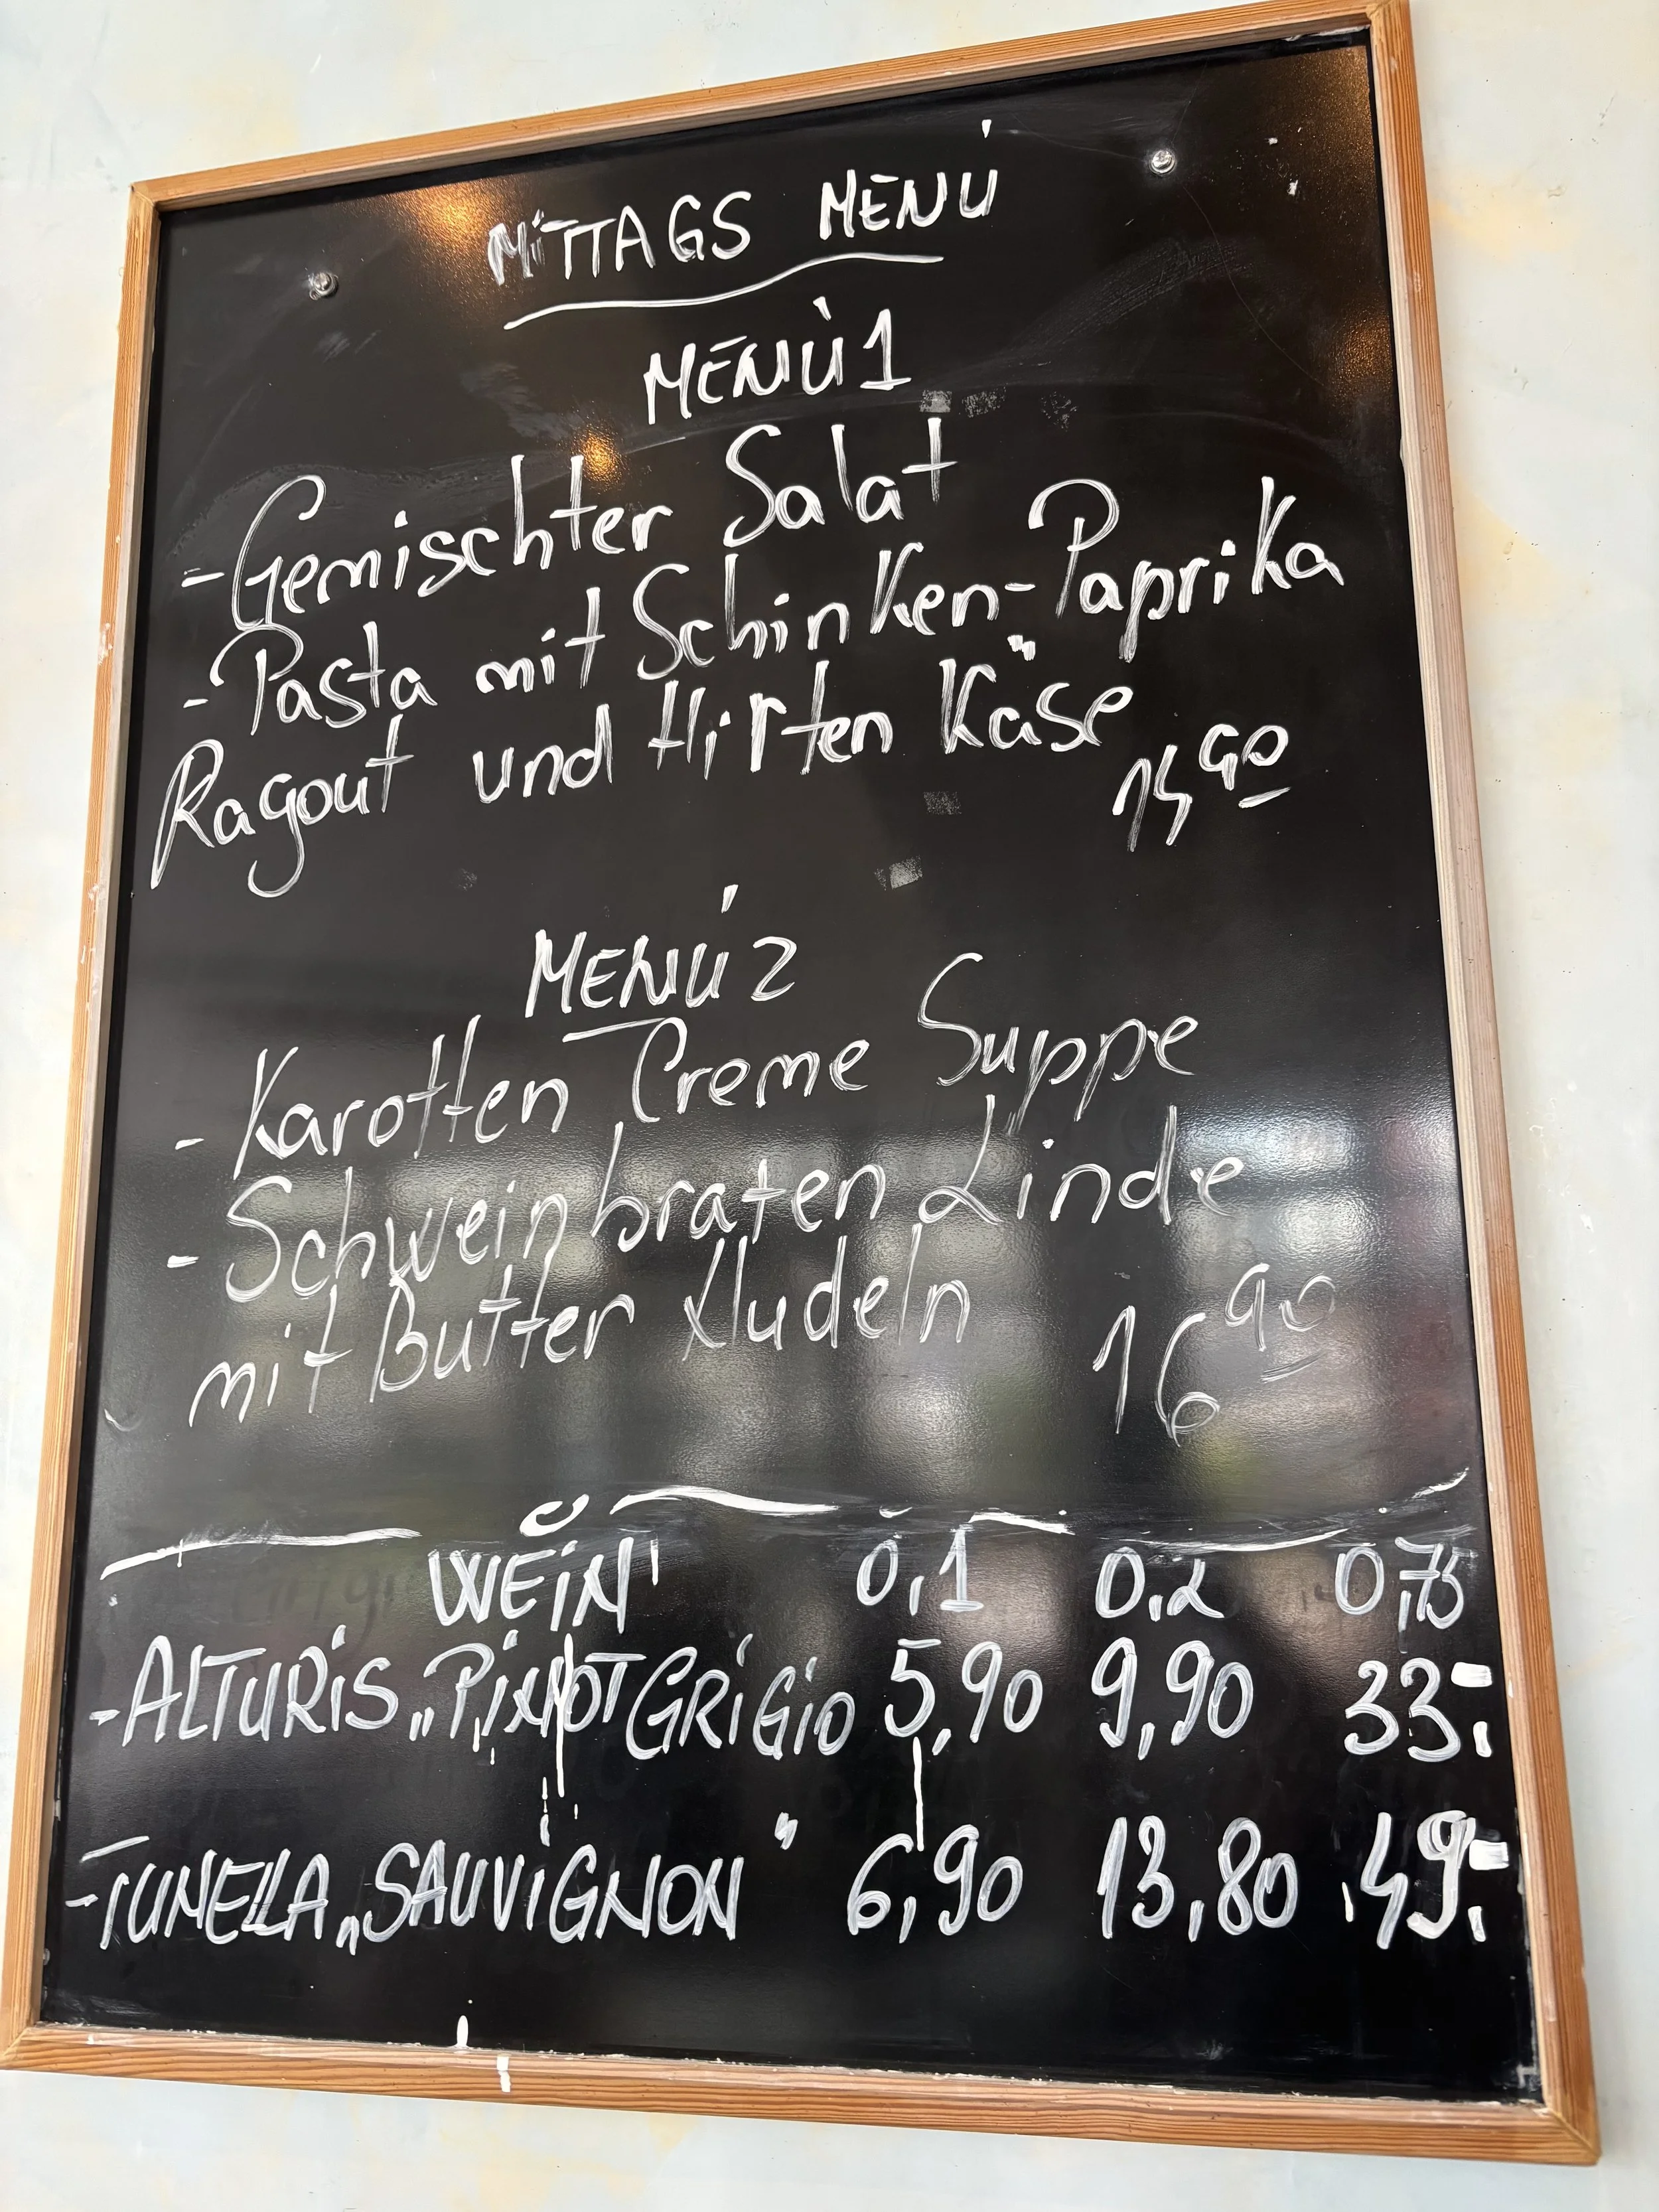 MiTTAGS MENÚ
MENÙ 1
- Gemischter Salat
- Pasta mit Schinken-Paprika
Ragout und Hirten Käse
90
MENÚ 2
- Karotten Creme Suppe
- Schweinbraten Linde
mit Butter Nudeln 16 90
WEiN 0,1 0,2 0,75
- ALTURiS „PiNOT GRiGio 5,90 9,90 33.-
- TUNELLA „SAUViGNON" 6,90 13,80 49.-